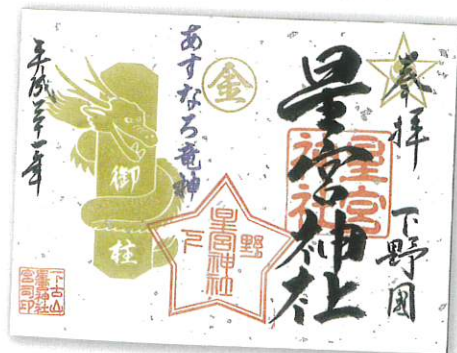 奉拝 下野国
星宮神社
星宮神社
金
下野
星宮神社
あすなろ竜神
御柱
平成三十一年
下古山
星宮神社
宮司印